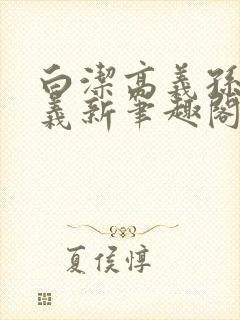 白潔高義孫
義新筆趣閣
夏侯惇